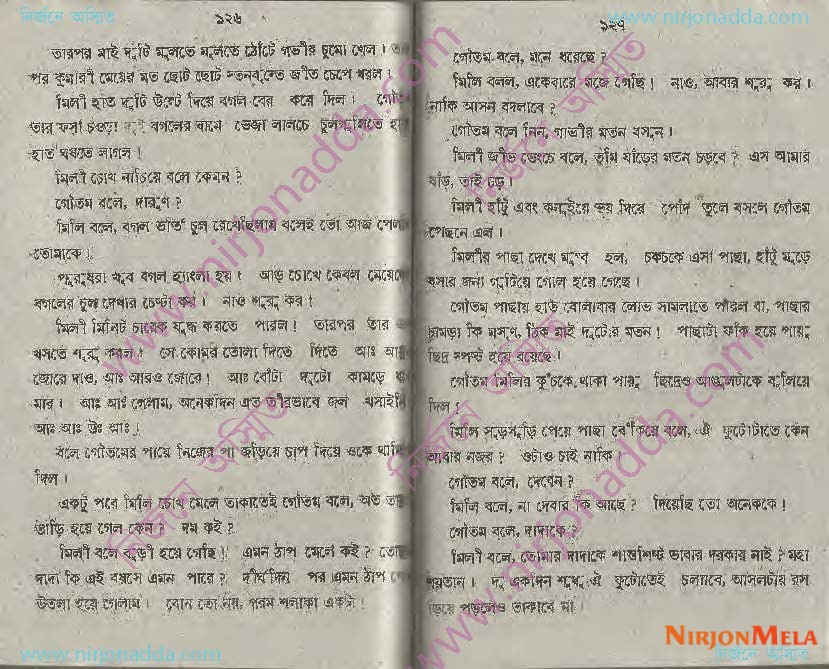 নির্জনে অস্মিত
১২৬
www.nirjonadda.com
তারপর মাই দুটি মুলতে মুলতে ঠোঁটে গভীর চুমো খেল। তার
পর কুমারী মেয়ের মত ছোট ছোট স্তনবৃন্তে জীভ চেপে ধরল।
মিলী হাত দুটি উল্টে দিয়ে বগল বের করে দিল।
তার ফর্সা চওড়া বগলের ঘামে ভেজা লালচে চুলগুলিতে
হাত ঘষতে লাগল।
মিলি চোখ নাচিয়ে বলে কেমন?
গৌতম বলে, দারুণ?
মিলি বলে, বগল ভর্তি চুল রেখেছিলাম বলেই তো আজ
তোমাকে।
পুরুষরা খুব বগল হ্যাংলা হয়। আড় চোখে কেবল
বগলের চুল দেখার চেষ্টা কর। নাও শুরু কর!
মিলী মিনিট চারেক যুদ্ধ করতে পারল! তারপর তার
খসতে শুরু করল। সে কোমর তোলা দিতে দিতে আঃ
জোরে দাও, আঃ আরও জোরে! আঃ বোঁটা দুটো কামড়ে
মার। আঃ আঃ গেলাম, অনেকদিন এত তীব্রভাবে জল খসাইনি
আঃ আঃ উঃ আঃ!
বলে গৌতমের পায়ে নিজের পা জড়িয়ে চাপ দিয়ে ওকে
দিল।
একটু পরে মিলি চোখ মেলে তাকাতেই গৌতম বলে, অত
তাড়ি হয়ে গেল কেন? দম কই?
মিলী বলে বুড়ী হয়ে গেছি! এমন ঠাপ মেলে কই?
দাদা কি এই বয়সে এমন পারে? দীর্ঘদিন পর এমন ঠাপ
উতলা হয়ে গেলাম। বোন তো নয়, গরম শলাকা একটা!
www.nirjonadda.com
১২৭
গৌতম বলে, মনে ধরেছে?
মিলি বলল, একেবারে মজে গেছি! নাও, আবার শুরু কর।
নাকি আসন বদলাবে?
গৌতম বলে নিন, গাভীর মতন বসুন।
মিলী জীভ ভেংচে বলে, তুমি ষাঁড়ের মতন চড়বে? এস আমার
ষাঁড়, তাই চড়।
মিলী হাঁটু এবং কনুইয়ে ভর দিয়ে পোঁদ তুলে বসলে গৌতম
পেছনে এল।
মিলীর পাছা দেখে মুগ্ধ হল, চকচকে এসা পাছা, হাঁটু মুড়ে
বসার জন্য গুটিয়ে গোল হয়ে গেছে।
গৌতম পাছায় হাত বোলাবার লোভ সামলাতে পারল না, পাছার
চামড়া কি মসৃণ, ঠিক মাই দুটোর মতন! পাছাটা ফাঁক হয়ে পায়ু
ছিদ্র স্পষ্ট হয়ে রয়েছে।
গৌতম মিলির কুঁচকে থাকা পায়ু ছিদ্রেও আঙুলটাকে বুলিয়ে
দিল!
মিলি সুড়সুড়ি পেয়ে পাছা বেঁকিয়ে বলে, ঐ ফুটোটাতে কেন
আবার নজর? ওটাও চাই নাকি।
গৌতম বলে, দেবেন?
মিলি বলে, না দেবার কি আছে? দিয়েছি তো অনেককে!
গৌতম বলে, দাদাকে?
মিলী বলে, তোমার দাদাকে শান্তশিষ্ট ভাবার দরকার নাই? মহা
শয়তান। দু একদিন শুধু ঐ ফুটোতেই চালাবে, আসলটায় রস
গড়িয়ে পড়লেও তাকাবে না।
www.nirjonadda.com
নির্জনে অস্মিত
www.nirjonadda.com
নির্জনে অস্মিত
www.nirjonadda.com
নির্জনে অস্মিত
NIRJONMELA
নির্জনে অস্মিত